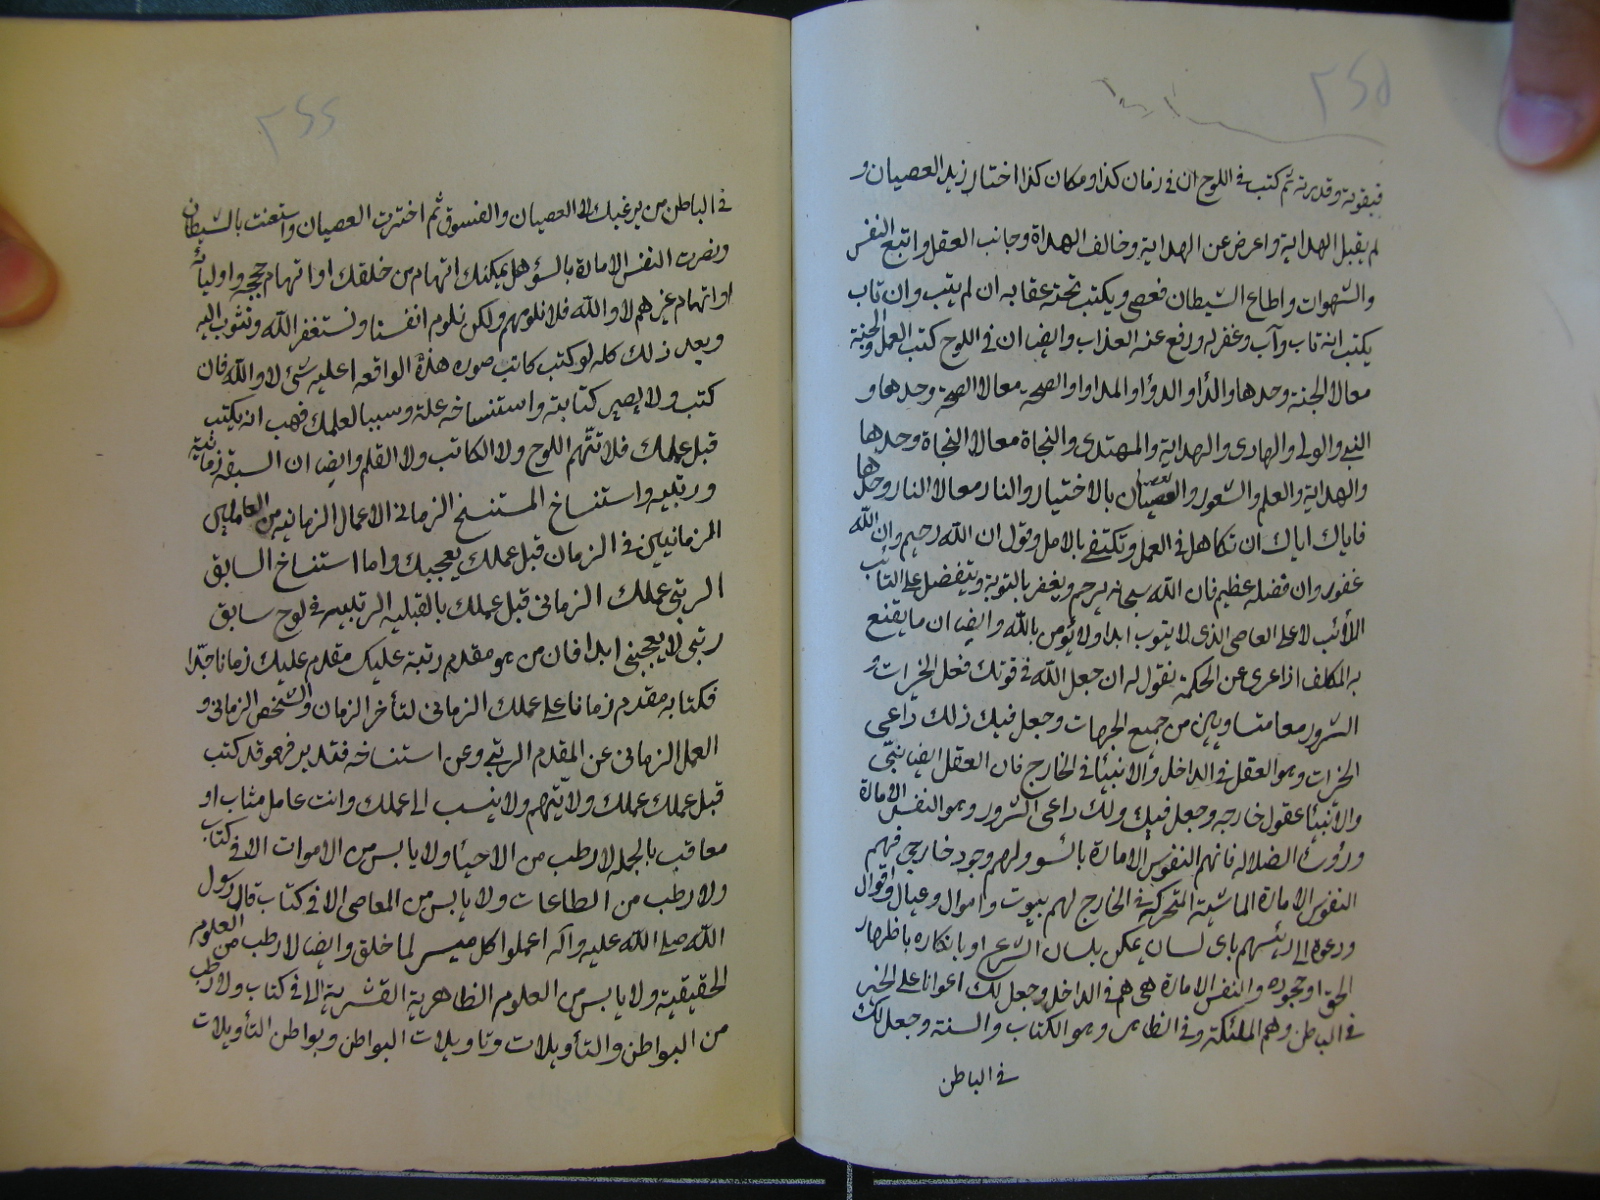 ۲۴۵
فبقوته وقدرته ثم كتب فى اللوح ان فى زمان كذا ومكان كذا اختار زيد العصيان و
لم يقبل الهداية واعرض عن الهداية وخالف الهداة وجانب العقل واتبع النفس
والشهوات واطاع الشيطان فعصى ويكتب تحته عقابه ان لم يتب وان تاب
يكتب انه تاب وآب وغفر له ورفع عنه العذاب وايضا ان فى اللوح كتب العمل والجنة
معا لا الجنة وحدها والدآ والدوآ والمداوا والصحة معا لا الصحة وحدها و
النبى والولى والهادى والهداية والمهتدى والنجاة معا لا النجاة وحدها
والهداية والعلم والشعور والعصيان بالاختيار والنار معا لا النار وحدها
فاياك اياك ان تكاهل فى العمل وتكتفى بالامل وتول ان الله رحيم وان الله
غفور وان فضله عظيم فان الله سبحانه يرحم ويغفر بالتوبة ويتفضل على التائب
الآئب لا على العاصى الذى لا يتوب ابدا ولا يؤمن بالله وايضا ان ما يقنع
به المكلف اذا عرى عن الحكمة نقول له ان جعل الله فى قوتك فعل الخيرات و
الشرور معا متساويين من جميع الجهات وجعل فيك ذلك داعى
الخيرات وهو العقل فى الداخل والانبيآ فى الخارج فان العقل ايضا نبى
والانبيآ عقول خارجه وجعل فيك ولك داعى الشرور وهو النفس الامارة
ورؤوس الضلاله فانهم النفوس الامارة بالسوء ولهم وجود خارجى فهم
النفوس الامارة الماشية المتحركة فى الخارج لهم بيوت واموال وعيال واقوال
ودعوة الى رئيسهم باى لسان يمكن بلسان الشرع او بانكاره باظهار
الحق او جحوده والنفس الامارة هى هم فى الداخل وجعل لك اعوانا على الخير
فى الباطن وهم الملئكة وفى الظاهر وهو الكتاب والسنة وجعل لك
فى الباطن
۲۴۴
فى الباطن من يرغبك الى العصيان والفسوق ثم اخترت العصيان واستعنت بالشيطان
ونصرت النفس الامارة بالسوء هل يمكنك اتهام من خلقك او اتهام حججه واوليائه
او اتهام غيرهم لا والله فلا نلومهم ولكن نلوم انفسنا ونستغفر الله ونتوب اليه
وبعد ذلك كله لو كتب كاتب صوره هذه الواقعه اعليه شئ لا والله فان
كتب ولا يصير كتابته واستنساخه علة وسببا لعلمك فهب انه يكتب
قبل عملك فلا تتهم اللوح ولا الكاتب ولا القلم وايضا ان السبق زمانية
ورتبيه واستنساخ المستنسخ الزمانى الاعمال الزمانيه من العاملين
الزمانيين فى الزمان قبل عملك يعجبك واما استنساخ السابق
الرتبى عملك الزمانى قبل عملك بالقبليه الرتبيه فى لوح سابق
رتبى لا يعجبنى ابدا فان من هو مقدم رتبة عليك مقدم عليك زمانا جدا
فكتابه مقدم زمانا على عملك الزمانى لتأخر الزمان والشخص الزمانى و
العمل الزمانى عن المقدم الرتبى وعن استنساخه فقد بر فهمو قد كتب
قبل عملك عملك ولا يتهم ولا ينسب الى عملك وانت عامل مثاب او
معاقب بالجمله لا رطب من الاحيآ ولا يابس من الاموات الا فى كتاب
ولا رطب من الطاعات ولا يابس من المعاصى الا فى كتاب قال رسول
الله صلى الله عليه وآله اعملوا كل ميسر لما خلق وايضا لا رطب من العلوم
الحقيقية ولا يابس من العلوم الظاهرية القشرية الا فى كتاب ولا رطب
من البواطن والتأويلات وتاويلات البواطن وبواطن التأويلات